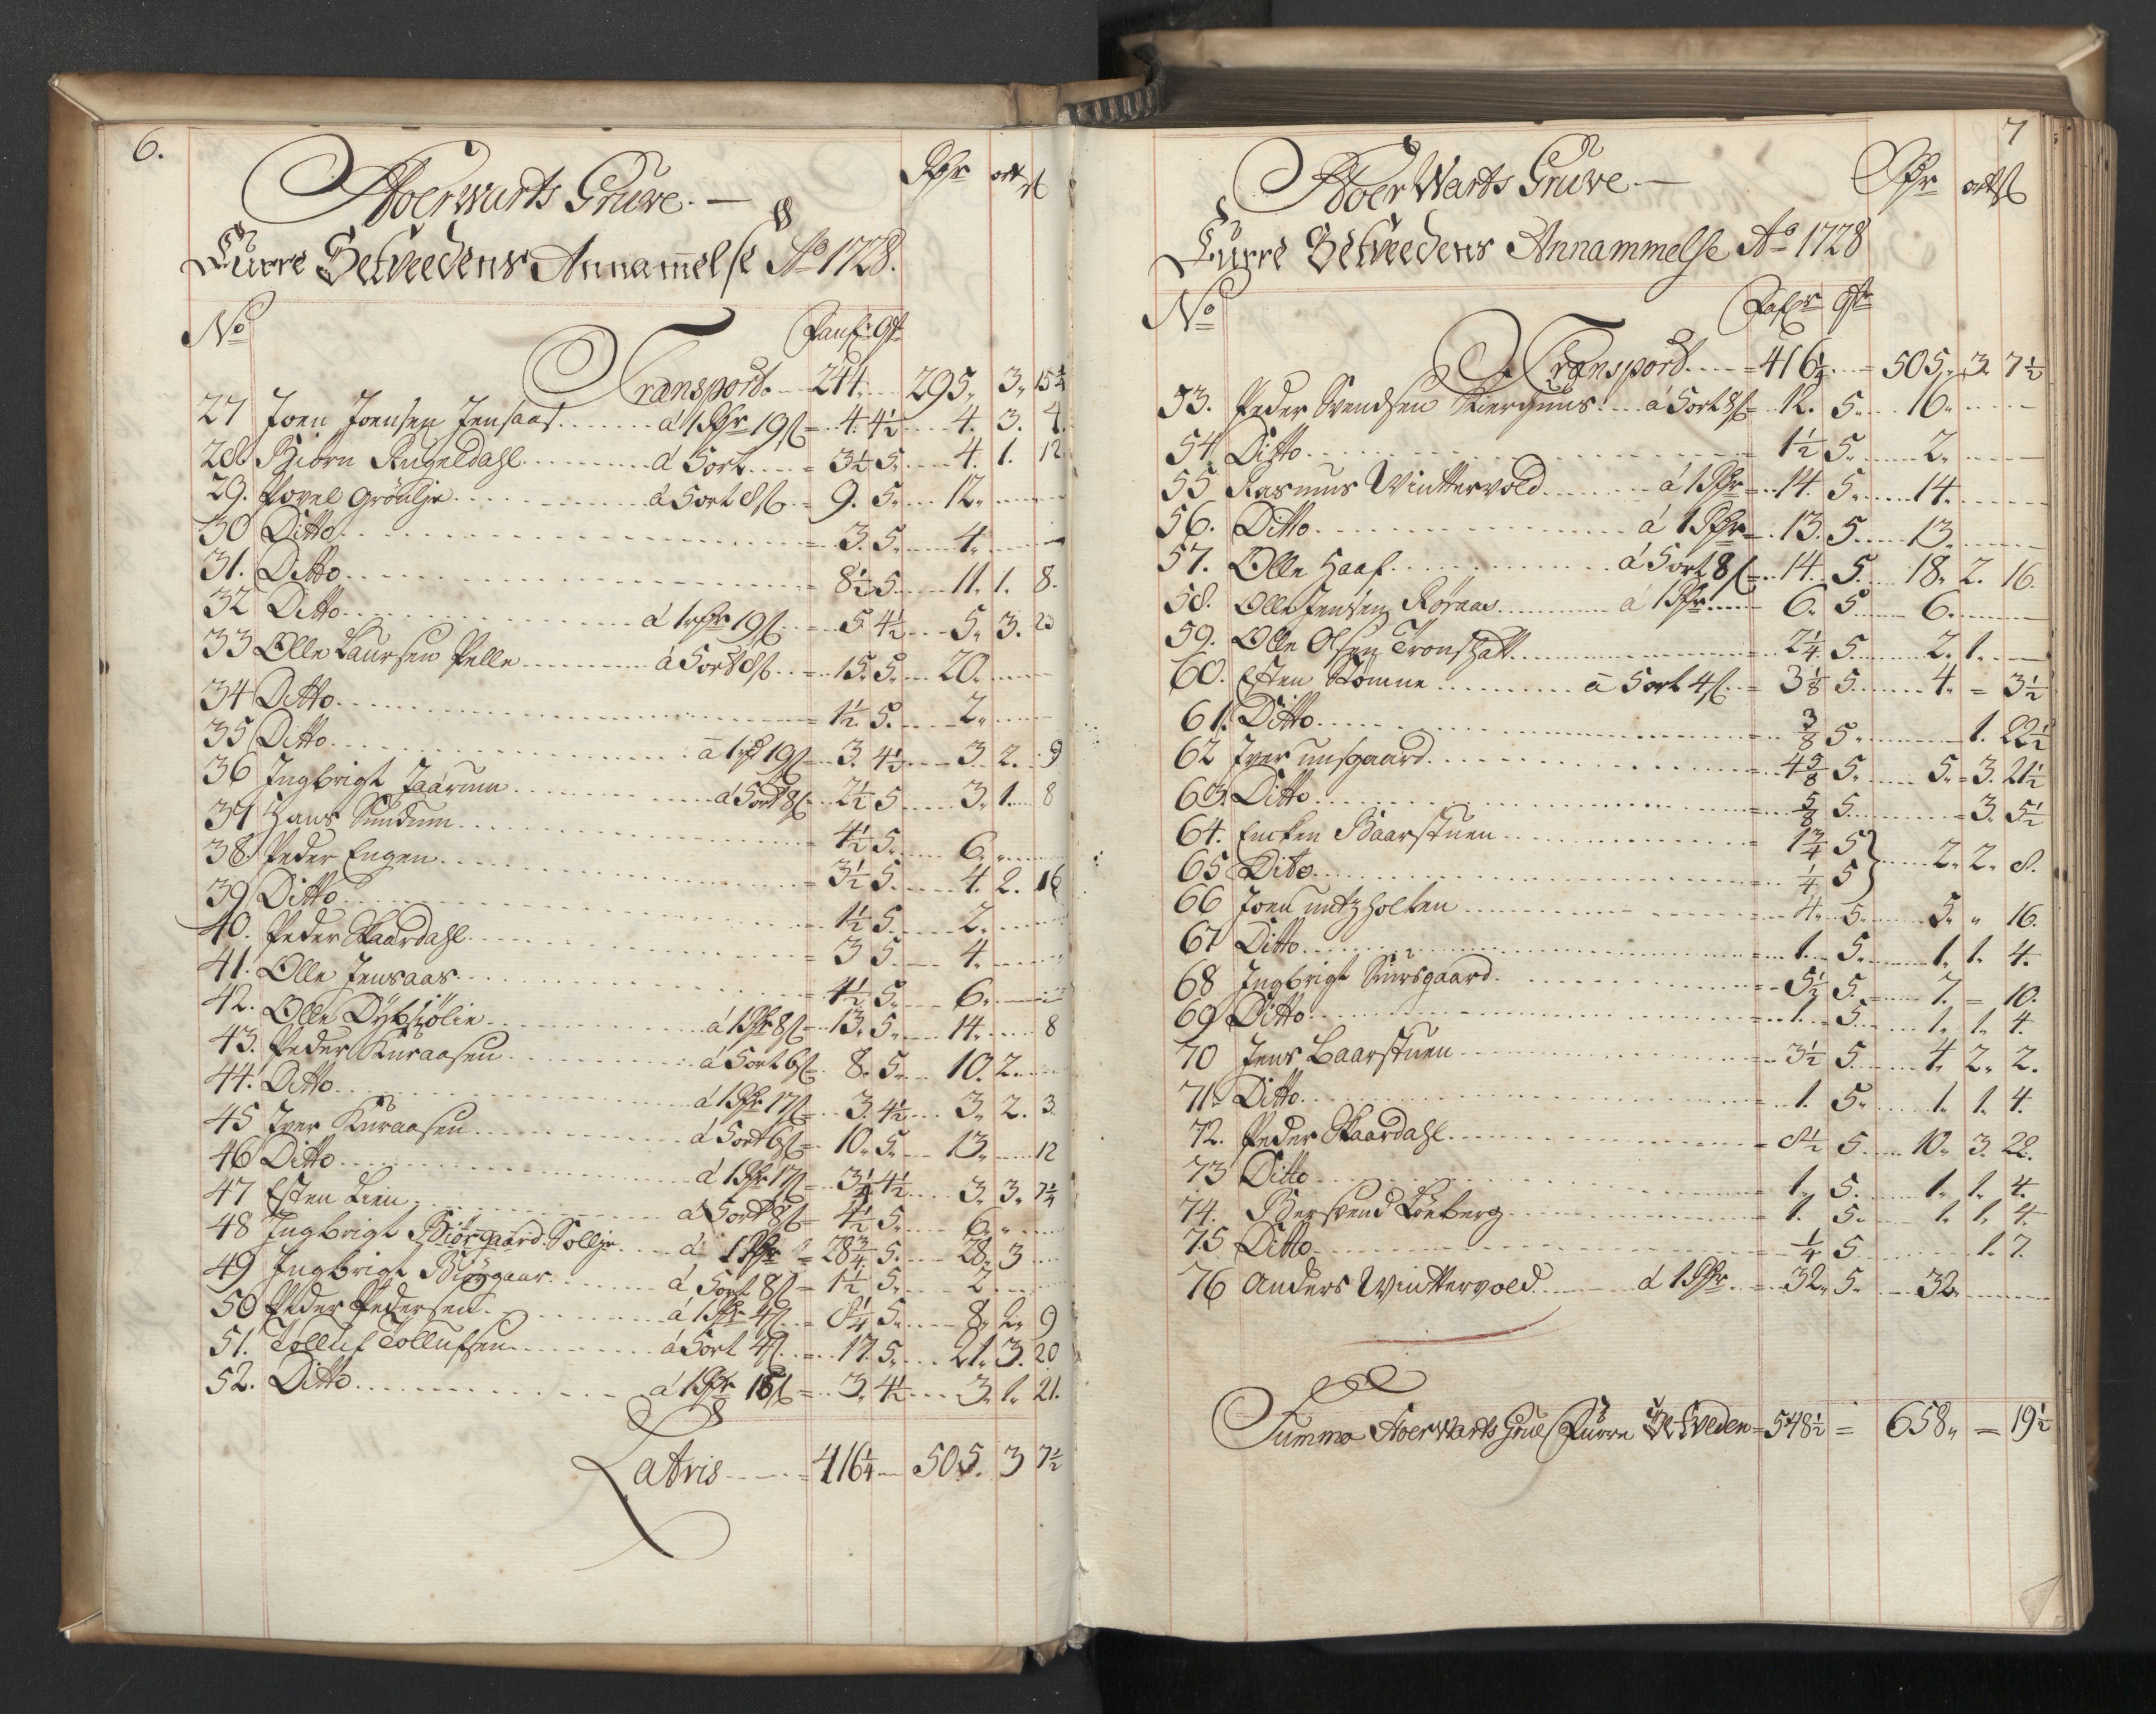 6.
Hoerwarts Gruve.—
Rdr ort ß
Furre Setveedens Annam̄else Ao 1728.
No
Fauf: Qt
Transport. 244. 295. 3. 15 3/4
27 Joen Joensen Jensaas á 1 Rdr 19 ß = 4. 4 1/2 4. 3. 4.
28. Biörn Rugeldahl á 5 ort = 3 1/2 5. 4. 1. 12
29. Povel Grönlje á 5 ort 8 ß = 9. 5. 12.
30 Ditto = 3. 5. 4.
31. Ditto = 8 1/2 5. 11. 1. 8.
32 Ditto á 1 Rdr 19 ß = 5 4 1/2 5. 3. 23
33 Olle Laursen Pelle á 5 ort 8 ß = 15. 5. 20.
34 Ditto = 1 1/2 5. 2.
35 Ditto á 1 Rd 19 ß = 3. 4 1/2 3. 2. 9
36 Ingbrigt Jaarum á 5 ort 8 ß 2 1/2 5 3. 1. 8
37 Hans Sundum = 4 1/2 5. 6.
38. Peder Engen = 3 1/2 5. 4. 2. 16
39 Ditto = 1 1/2 5. 2.
40. Peder Skaardahl = 3 5. 4.
41. Olle Jensaas = 4 1/2 5. 6.
42. Olle Dybsiölie á 1 Rdr 8 ß = 13. 5. 14. 8
43. Peder Kuraasen á 5 ort 6 ß 8. 5. 10. 2.
44. Ditto á 1 Rdr 17 ß = 3. 4 1/2 3. 2. 3.
45 Iver Kuraasen á 5 ort 6 ß = 10. 5. 13. 12
46 Ditto á 1 Rdr 17 ß = 3 1/4 4 1/2 3. 3. 7 1/4
47 Esten Lien á 5 ort 8 ß = 4 1/2 5. 6.
48 Ingbrigt Biörgaard Sollje á 1 Rdr = 28 3/4 5. 28. 3
49 Ingbrigt Biörgaar á 5 ort 8 ß = 1 1/2 5. 2
50 Peder Pedersen á 1 Rdr 4 ß = 8 1/4 5. 8. 2. 9
51. Tolluf Tollufsen á 5 ort 4 ß = 17. 5. 21. 3. 20
52. Ditto á 1 Rdr 18 ß = 3. 4 1/2 3. 1. 21.
Latris = 416 1/4 505. 3 7 1/2
7
Hoer Warts Gruve.—
Rdr ort ß
Furre Setveedens Annammelse Ao 1728
No
Fafr Qtr
Transport = 416 1/4 = 505. 3. 7 1/2
53. Peder Svendsen á 5 ort 8 ß = 12. 5. 16.
54 Ditto 1 1/2 5. 2.
55 Rasmus Winttervold á 1 Rdr = 14. 5. 14.
56. Ditto á 1 Rdr = 13. 5. 13.
57. Olle Haaf á 5 ort 8 ß = 14. 5. 18. 2. 16.
58. Olle Jensen Röraas á 1 Rdr 6. 5. 6.
59. Olle Olsen Tronshatt = 2 1/4 5. 2. 1.
60. Esten Stömne á 5 ort 4 ß = 3 1/8 5. 4. = 3 1/2
61. Ditto = 3/8 5. 1. 22 1/2
62 Iver unsgaard = 4 5/8 5. 5. = 3. 21 1/2
63. Ditto = 5/8 5. 3. 5 1/2
64. Encken Baarstuen = 1 3/4 5 } 2. 2. 8.
65 Ditto = 1/4 5
66 Joen = 4. 5. 5. „ 16.
67 Ditto = 1. 5. 1. 1. 4.
68 Ingbrigt Suursgaard = 5 1/2 5. 7. = 10.
69 Ditto = 1. 5. 1. 1. 4.
70 Jens Baarstuen = 3 1/2 5. 4. 2. 2.
71. Ditto = 1. 5. 1. 1. 4.
72. Peder Skaardahl = 8 1/2 5. 10. 3. 22.
73 Ditto = 1. 5. 1. 1. 4.
74. Bersvend Löeberg = 1. 5. 1. 1. 4.
75 Ditto = 1/4 5. 1. 7.
76 Anders Winttervold á 1 Rdr = 32. 5. 32.
Summa Hoer Warts Gruvs Furre Setveden = 548 1/2 = 658. = 19 1/2